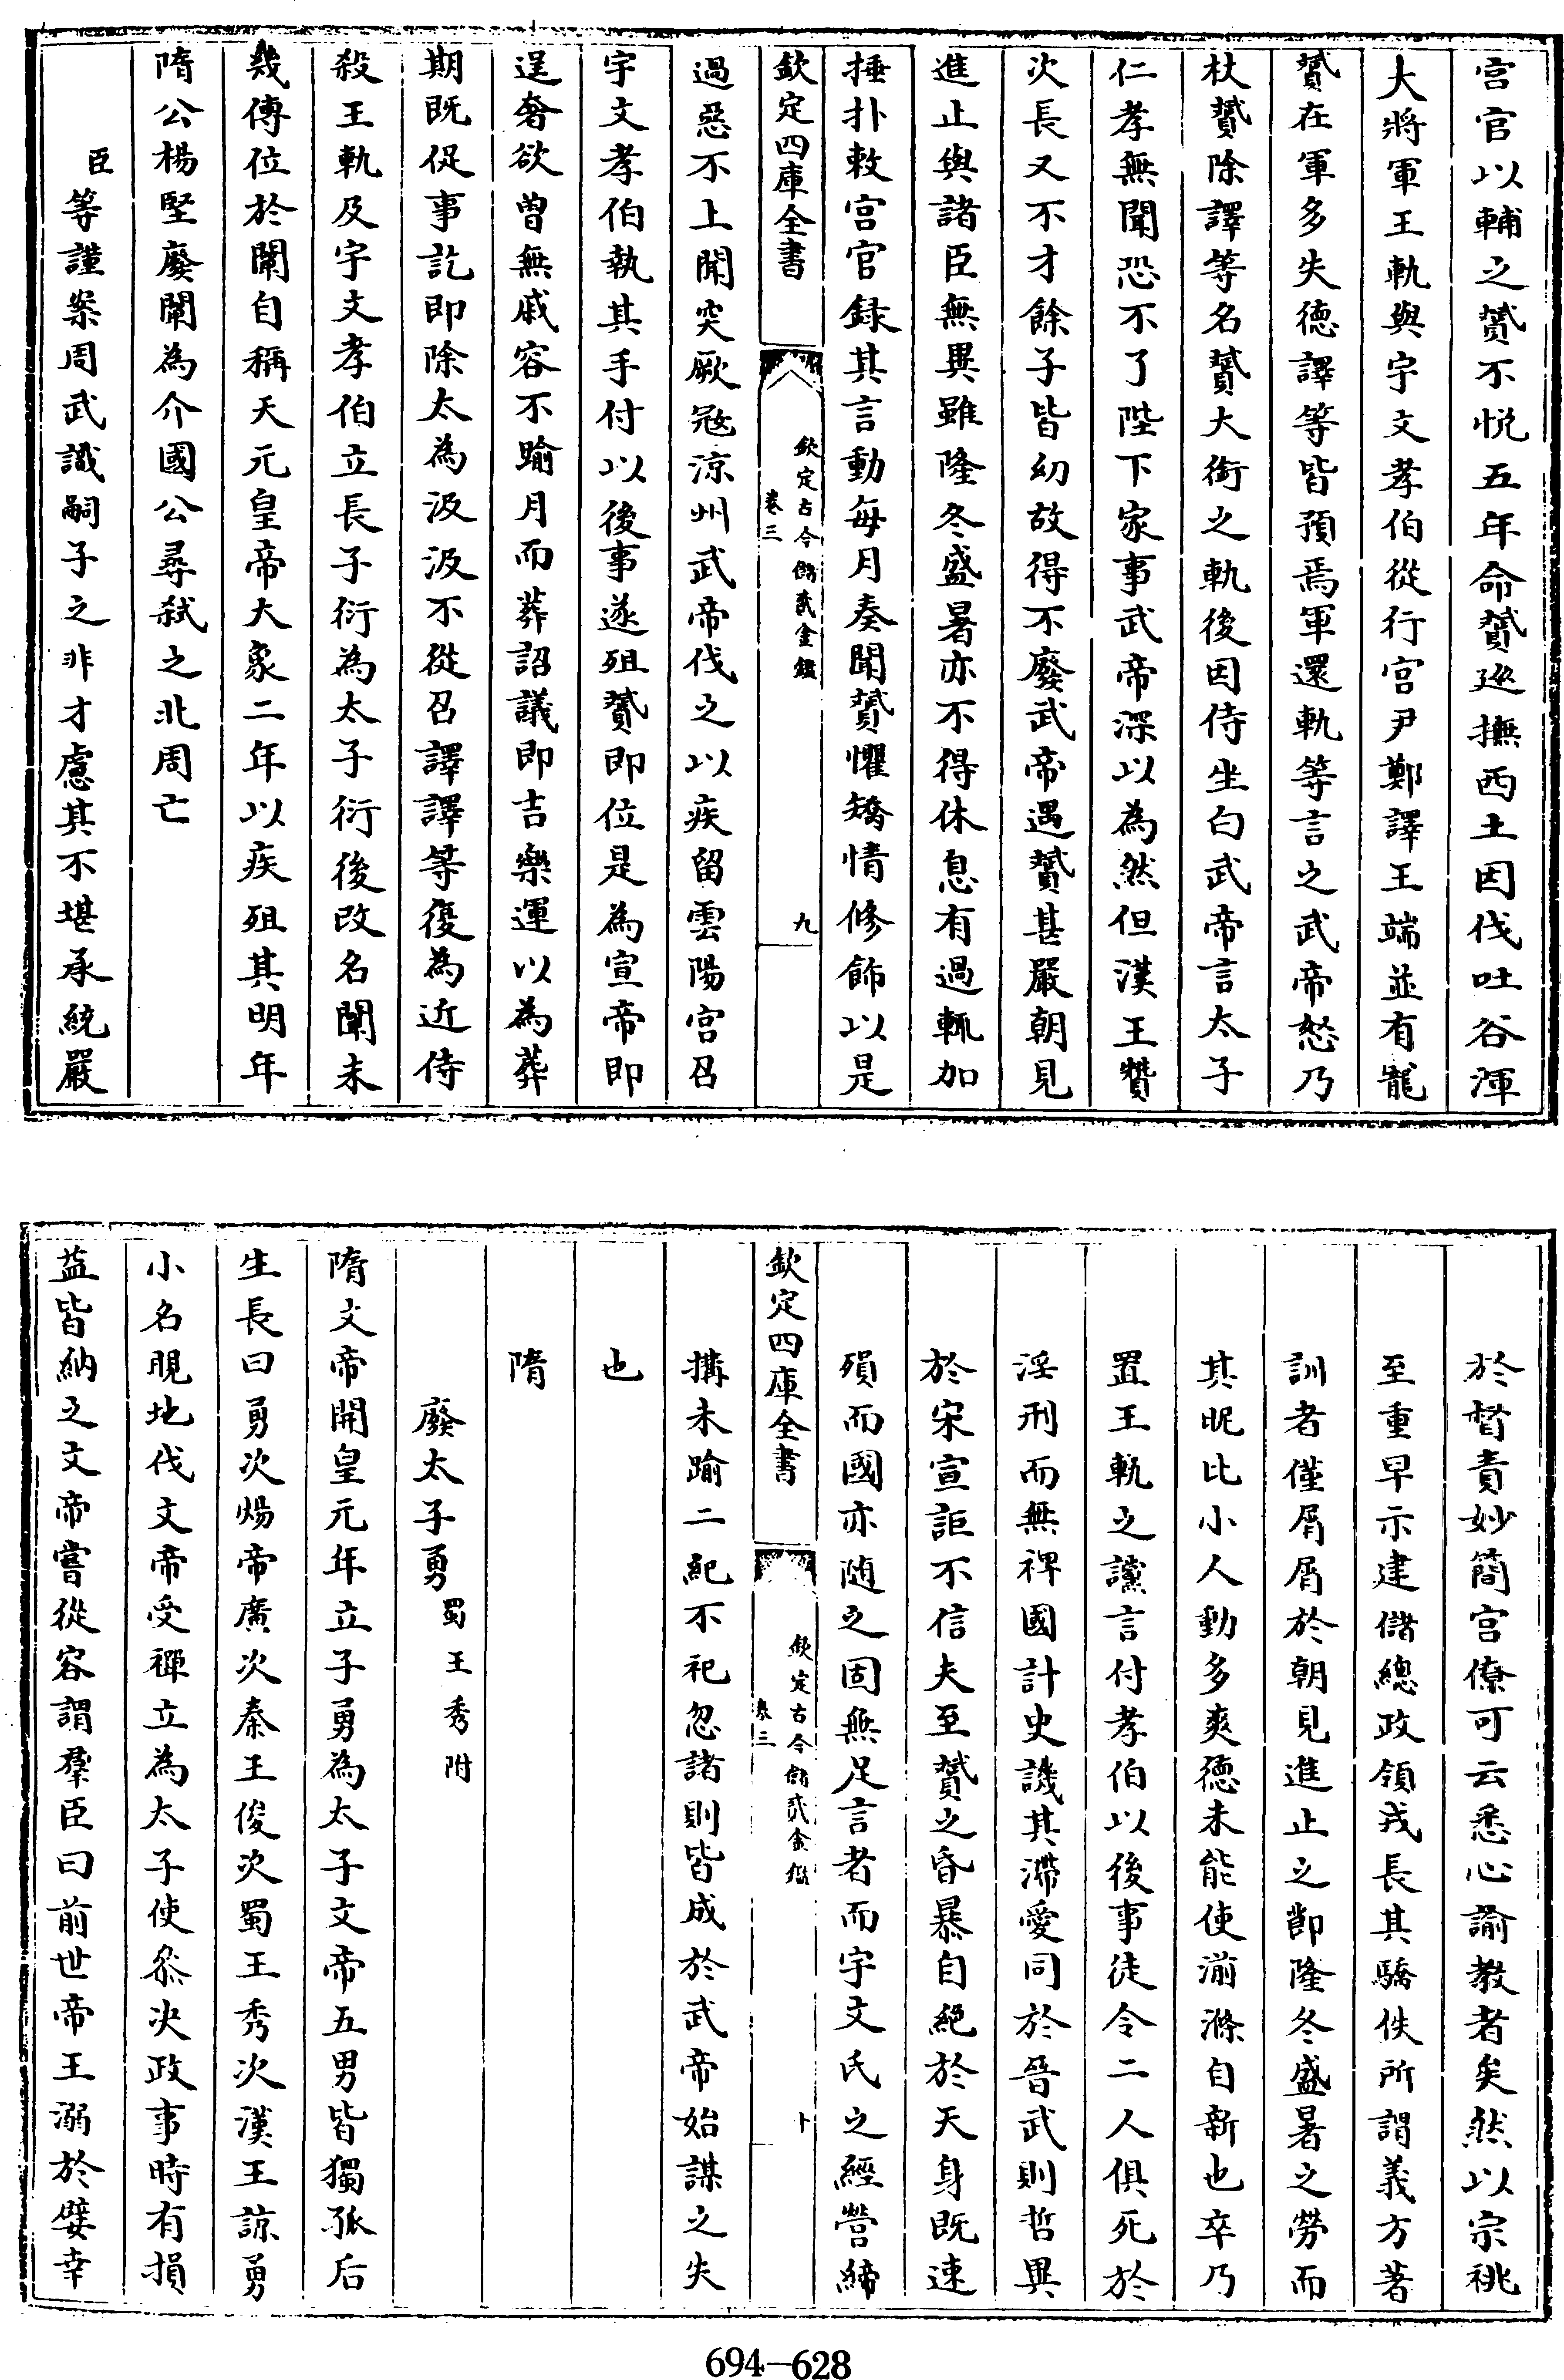 宫官以輔之贇不悅五年命贇廵撫西土因伐吐谷渾
大將軍王軌與宇文孝伯從行宫尹鄭譯王端並有寵
贇在軍多失德譯等皆預焉軍還軌等言之武帝怒乃
杖贇除譯等名贇大銜之軌後因侍坐白武帝言太子
仁孝無聞恐不了陛下家事武帝深以為然但漢王贊
次長又不才餘子皆幼故得不廢武帝遇贇甚嚴朝見
進止與諸臣無異雖隆冬盛暑亦不得休息有過輒加
捶扑敕宫官録其言動每月奏聞贇懼矯情修飾以是
欽定四庫全書
欽定古今儲貳金鑑
卷三
九
過惡不上聞突厥冦涼州武帝伐之以疾留雲陽宫召
宇文孝伯執其手付以後事遂殂贇即位是為宣帝即
逞奢欲曾無戚容不踰月而葬詔議即吉樂運以為葬
期既促事訖即除太為汲汲不從召譯譯等復為近侍
殺王軌及宇文孝伯立長子衍為太子衍後改名闡未
幾傳位於闡自稱天元皇帝大象二年以疾殂其明年
隋公楊堅廢闡為介國公尋弑之北周亡
臣等謹案周武識嗣子之非才慮其不堪承統嚴
於督責妙簡宫僚可云悉心諭教者矣然以宗祧
至重早示建儲總政領戎長其驕佚所謂義方著
訓者僅屑屑於朝見進止之節隆冬盛暑之勞而
其昵比小人動多爽德未能使湔滌自新也卒乃
置王軌之讜言付孝伯以後事徒令二人俱死於
淫刑而無裨國計史譏其滯愛同於晉武則哲異
於宋宣詎不信夫至贇之昏暴自絕於天身既速
殞而國亦随之固無足言者而宇文氏之經營締
欽定四庫全書
欽定古今儲貳金鑑
卷三
十
搆未踰二紀不祀忽諸則皆成於武帝始謀之失
也
隋
廢太子勇蜀王秀附
隋文帝開皇元年立子勇為太子文帝五男皆獨孤后
生長曰勇次煬帝廣次秦王俊次蜀王秀次漢王諒勇
小名睍地伐文帝受禪立為太子使叅决政事時有損
益皆納之文帝嘗從容謂羣臣曰前世帝王溺於嬖幸
694-628